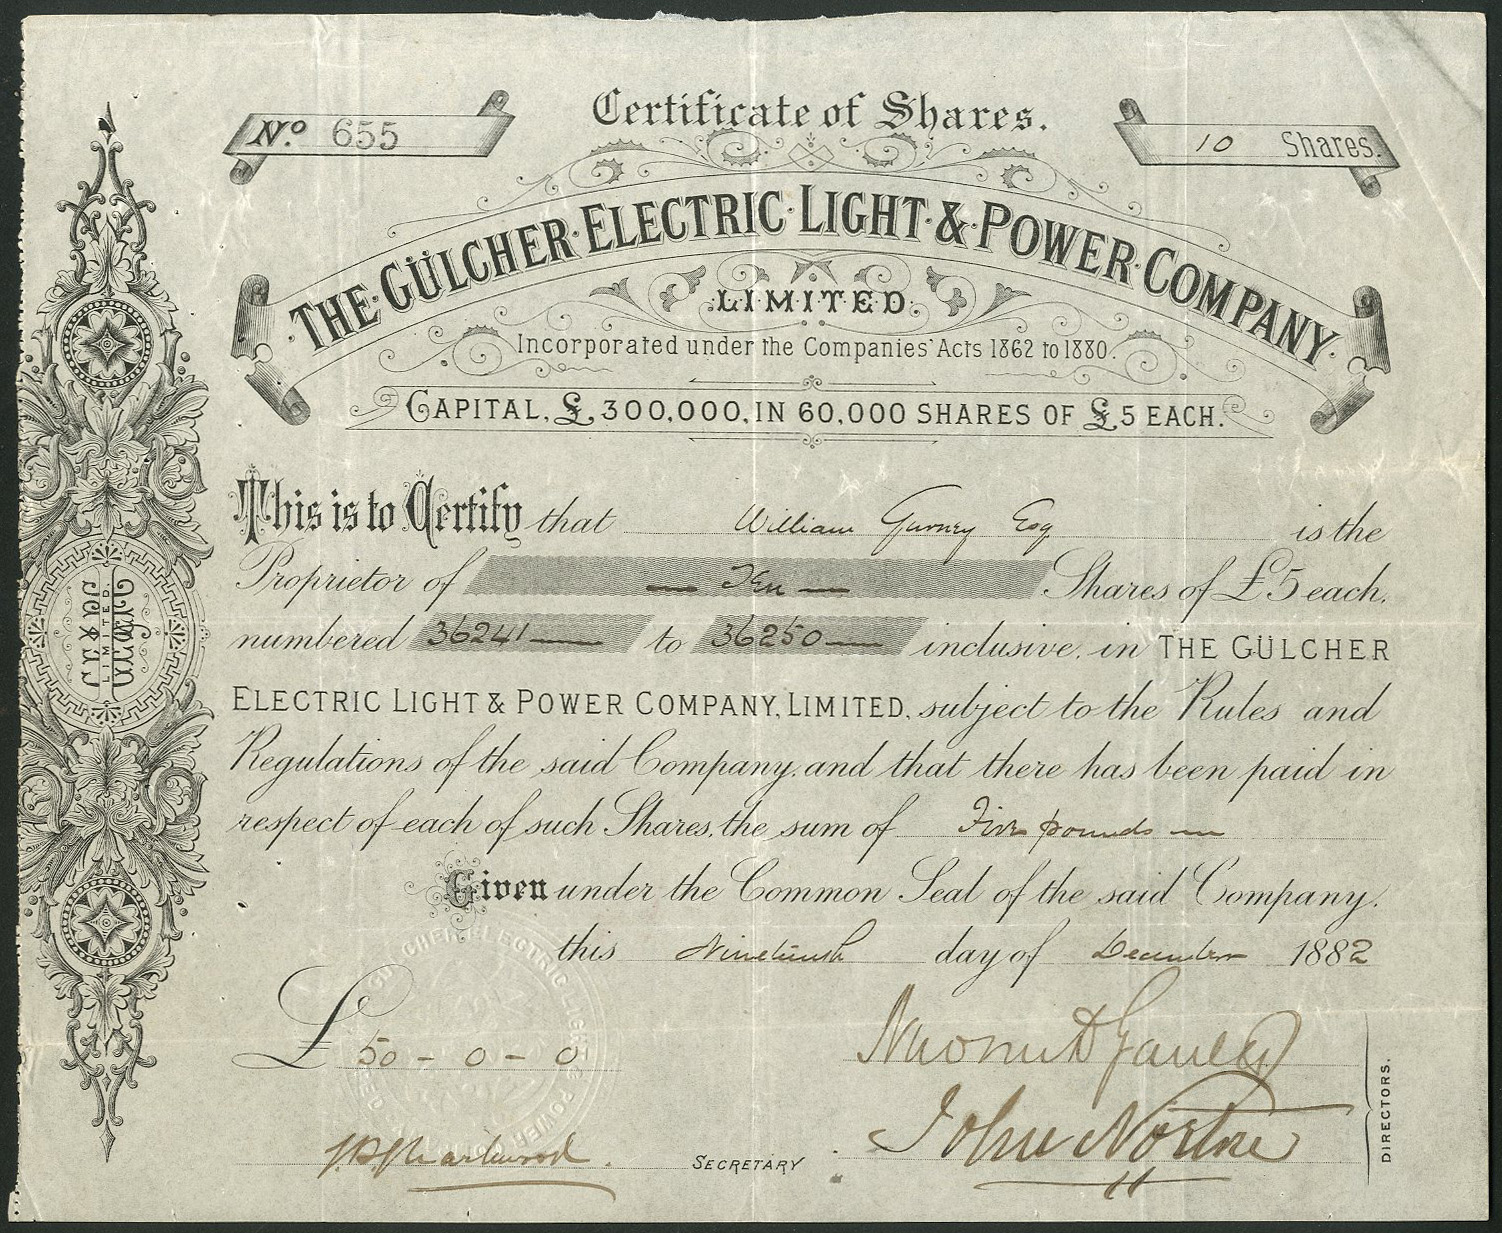 Certificate of Shares.
No. 655
10 Shares.
THE GÜLCHER ELECTRIC LIGHT & POWER COMPANY.
LIMITED.
Incorporated under the Companies' Acts 1862 to 1880.
CAPITAL, £300,000, IN 60,000 SHARES OF £5 EACH.
This is to Certify that William Gurney Esq is the
Proprietor of — Ten — Shares of £5 each,
numbered 36241 — to 36250 — inclusive, in THE GÜLCHER
ELECTRIC LIGHT & POWER COMPANY, LIMITED, subject to the Rules and
Regulations of the said Company, and that there has been paid in
respect of each of such Shares, the sum of Five pounds —
Given under the Common Seal of the said Company,
this Nineteenth day of December 1882
£ 50 - 0 - 0
John
DIRECTORS.
SECRETARY
LIMITED